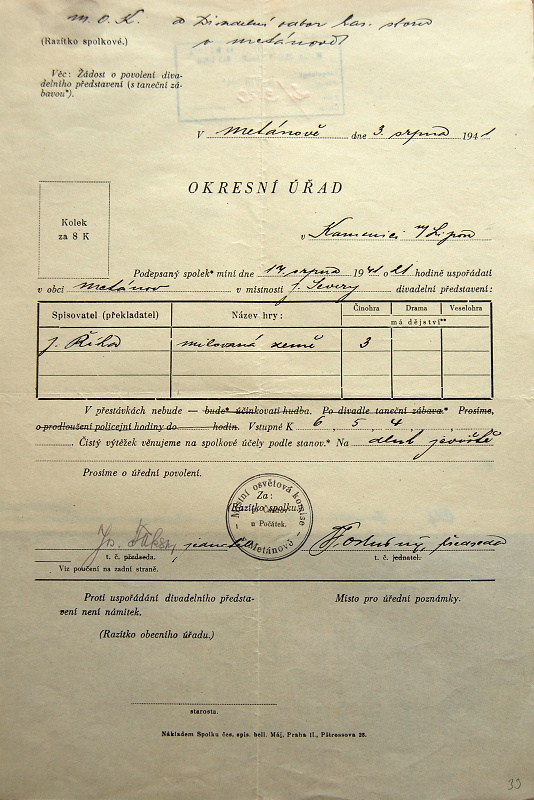 M. O. K. a Divadelní odbor
(Razítko spolkové.) v Metánově
Věc: Žádost o povolení diva-
delního představení (s taneční zá-
bavou*).
V Metánově dne 3. srpna 1941
OKRESNÍ ÚŘAD
Kolek
za 8 K
v Kamenici n/Lipou
Podepsaný spolek* míní dne 14. srpna 1941 o 21 hodině uspořádati
v obci Metánov v místnosti J. Severy divadelní představení:
Spisovatel (překladatel) Název hry: Činohra Drama Veselohra
má dějství**
J. Říha Milovaná země 3
V přestávkách nebude — bude* účinkovati hudba. Po divadle taneční zábava.* Prosíme,
o prodloužení policejní hodiny do hodin. Vstupné K 6, 5, 4
Čistý výtěžek věnujeme na spolkové účely podle stanov.* Na dluh jeviště
Prosíme o úřední povolení.
Za:
(Razítko spolku.)
Místní osvětová komise
u Počátek.
v Metánově
jednatel předseda
t. č. předseda. t. č. jednatel.
Viz poučení na zadní straně.
Proti uspořádání divadelního předsta-
vení není námitek.
Místo pro úřední poznámky.
(Razítko obecního úřadu.)
starosta.
Nákladem Spolku čes. spis. bell. Máj, Praha II., Pštrossova 28.
33